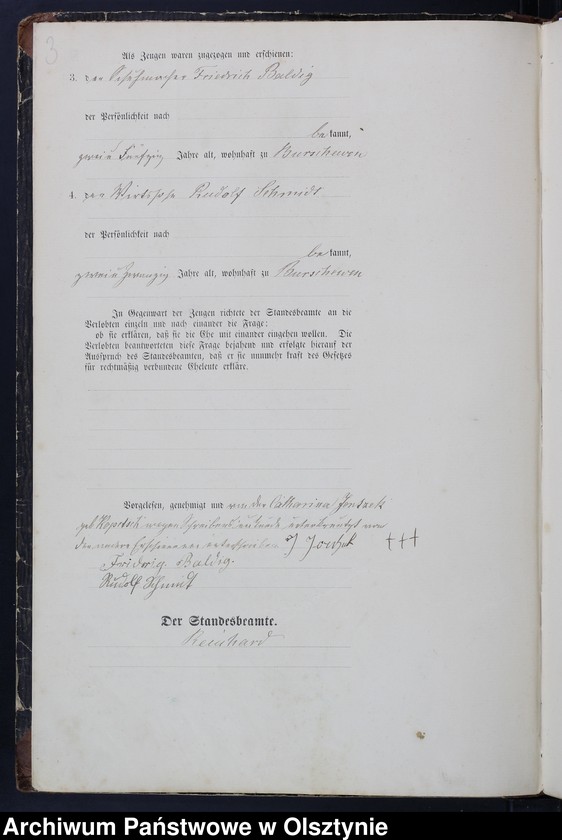 3
Als Zeugen waren zugezogen und erschienen:
3. der Friedrich Baldig
der Persönlichkeit nach
be kannt,
zwei u fünfzig Jahre alt, wohnhaft zu Burschewen
4. der Wirthssohn Rudolf Schmidt
der Persönlichkeit nach
be kannt,
zwei u zwanzig Jahre alt, wohnhaft zu Burschewen
In Gegenwart der Zeugen richtete der Standesbeamte an die
Verlobten einzeln und nach einander die Frage:
ob sie erklären, daß sie die Ehe mit einander eingehen wollen. Die
Verlobten beantworteten diese Frage bejahend und erfolgte hierauf der
Ausspruch des Standesbeamten, daß er sie nunmehr kraft des Gesetzes
für rechtmäßig verbundene Eheleute erkläre.
Vorgelesen, genehmigt und von der Catharina
geb wegen Schreibens unterkreuzt von
den unterschrieben +++
Baldig.
Rudolf Schmidt
Der Standesbeamte.
Reinhard
Archiwum Państwowe w Olsztynie